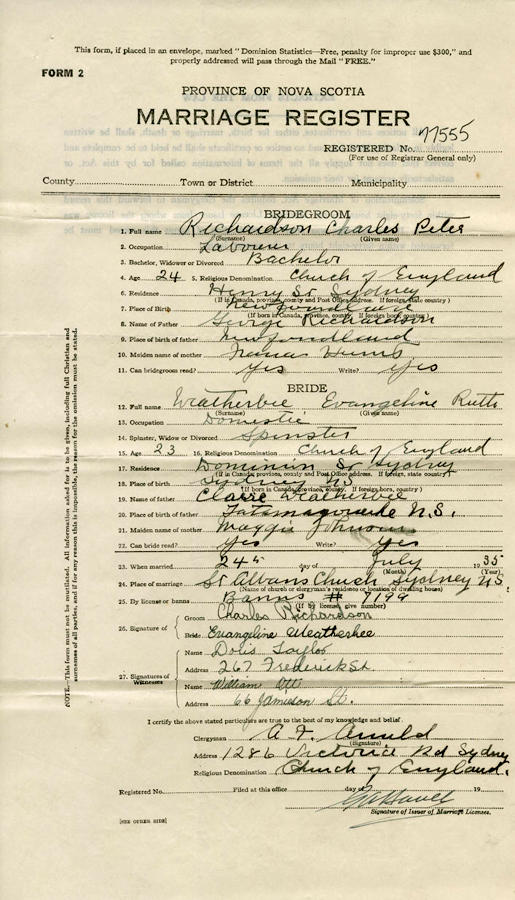 This form, if placed in an envelope, marked "Dominion Statistics—Free, penalty for improper use $300," and
properly addressed will pass through the Mail "FREE."
FORM 2
PROVINCE OF NOVA SCOTIA
MARRIAGE REGISTER
REGISTERED No. 77555
(For use of Registrar General only)
County Town or District Municipality
BRIDEGROOM
1. Full name Richardson Charles Peter
(Surname) (Given name)
2. Occupation Labourer
3. Bachelor, Widower or Divorced Bachelor
4. Age 24 5. Religious Denomination Church of England
6. Residence Henry St Sydney
(If in Canada, province, county and Post Office address. If foreign, state country)
7. Place of Birth Newfoundland
(If born in Canada, province, county. If foreign born, country)
8. Name of Father George Richardson
9. Place of birth of father Newfoundland
10. Maiden name of mother
11. Can bridegroom read? Yes Write? Yes
BRIDE
12. Full name Weatherbie Evangeline Ruth
(Surname) (Given name)
13. Occupation Domestic
14. Spinster, Widow or Divorced Spinster
15. Age 23 16. Religious Denomination Church of England
17. Residence Dominion St Sydney
(If in Canada, province, county and Post Office address. If foreign, state country)
18. Place of birth Sydney NS
(If born in Canada, province, county. If foreign born, country)
19. Name of father Weatherbie
20. Place of birth of father Tatamagouche N.S.
21. Maiden name of mother Maggie Johnson
22. Can bride read? Yes Write? Yes
23. When married 24th day of July 1935
(Month) (Year)
24. Place of marriage St Albans Church Sydney NS
(Name of church or clergyman's residence or location of dwelling house)
25. By license or banns Banns # 7199
(If by license, give number)
26. Signature of Groom Charles Richardson
Bride Evangline Weatherbee
27. Signatures of Witnesses
Name Doris Taylor
Address 267 Frederick St.
Name William Ott
Address 66 Jamieson St.
I certify the above stated particulars are true to the best of my knowledge and belief.
Clergyman A. F. Arnold
(Signature)
Address 1286 Victoria Rd Sydney
Religious Denomination Church of England.
Registered No. Filed at this office day of 19
Signature of Issuer of Marriage Licenses.
[SEE OTHER SIDE]
NOTE. This form must not be mutilated. All information asked for is to be given, including full Christian and
surnames of all parties, and if for any reason this is impossible, the reason for the omission must be stated.